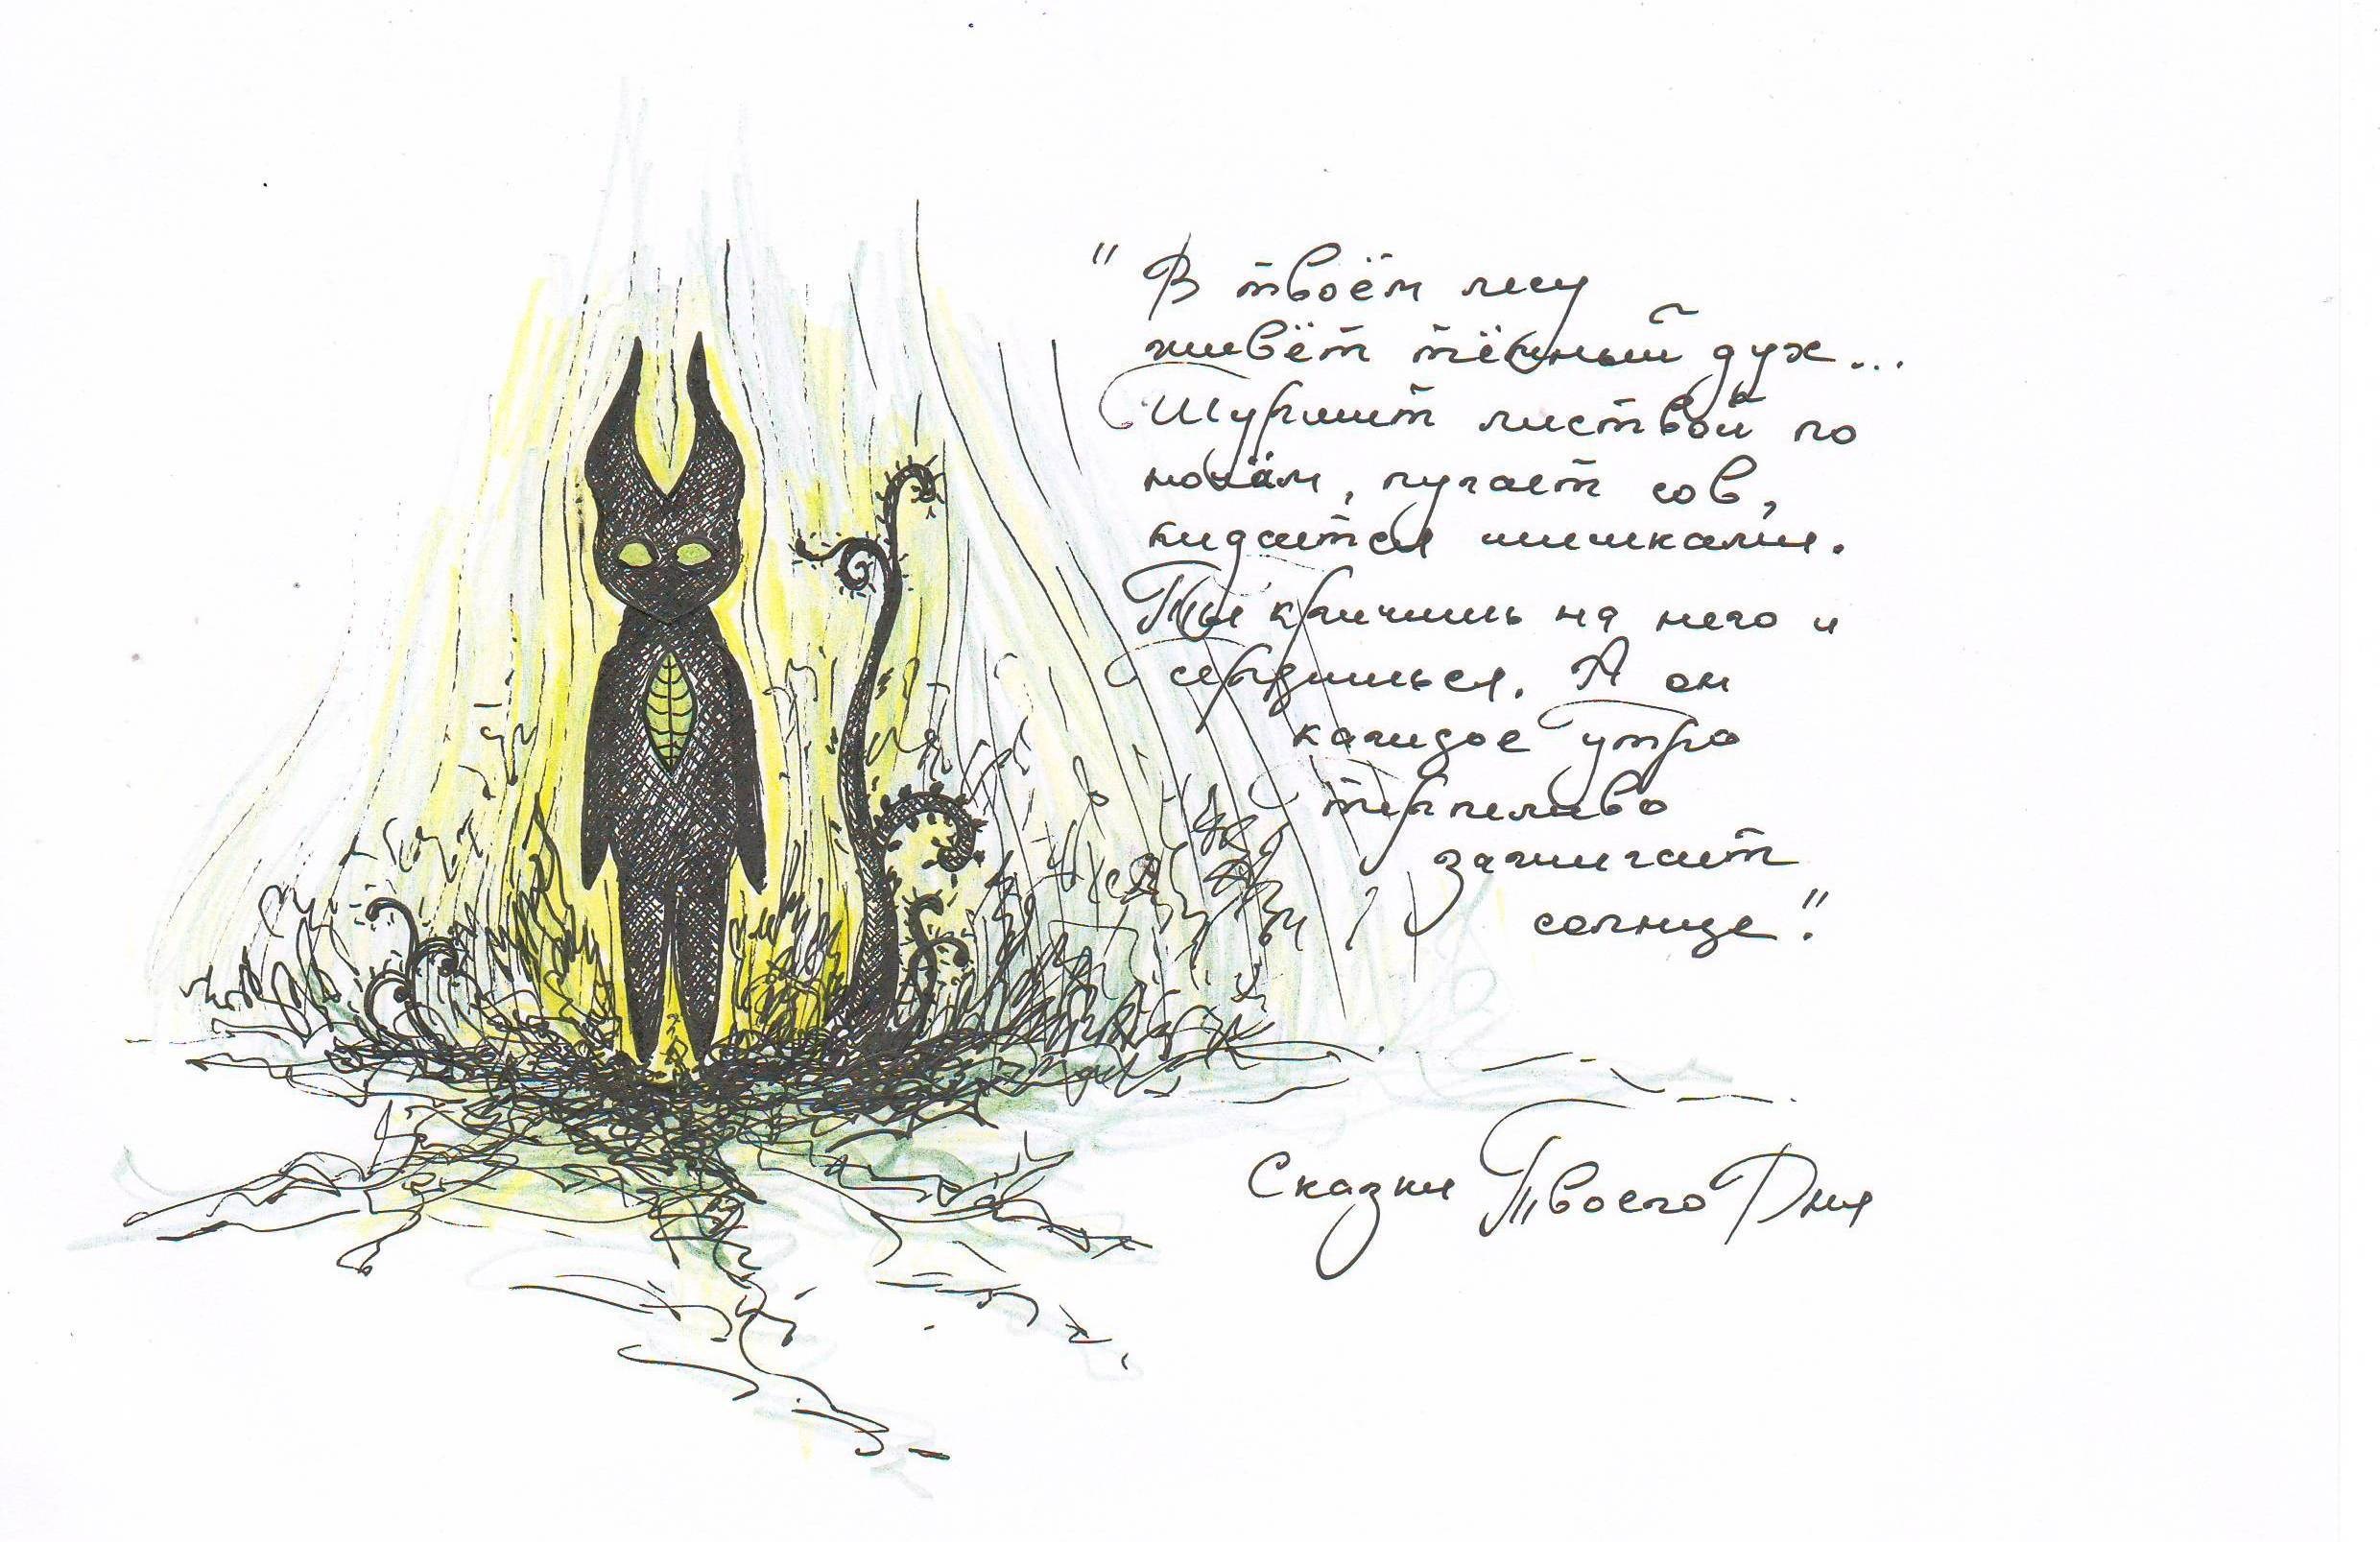 "В твоём лесу
живёт тёмный дух...
Шуршит листвой по
ночам, пугает сов,
кидается шишками.
Ты кричишь на него и
сердишься. А он
каждое утро
терпеливо
зажигает
солнце."
Сказки Твоего Дня